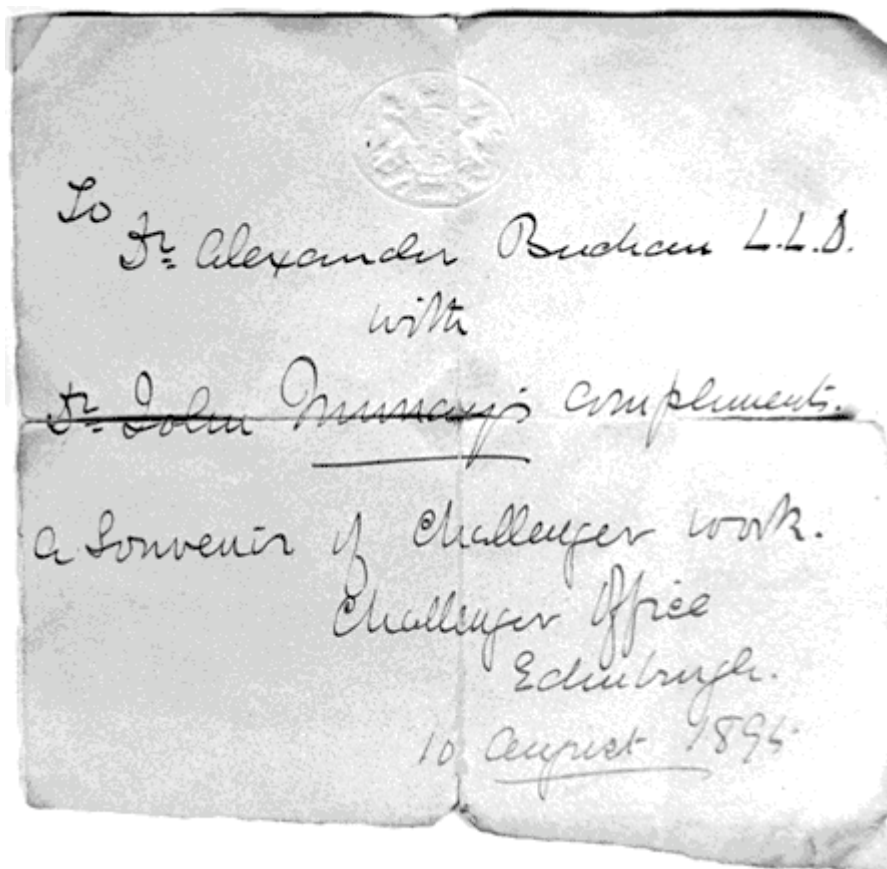 To
Dr. Alexander Buchan L.L.D.
with
Dr. John Murray's compliments.
a Souvenir of Challenger work.
Challenger Office
Edinburgh.
10 August 1895